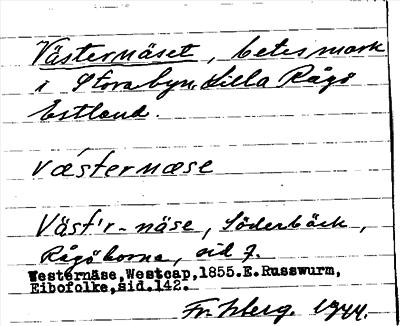 Västernäset, betesmark
i Storabyn, Lilla Rågö
Estland.
västernæse
Väst'r-näse, Söderbäck,
Rågöborna, sid 7.
Westernäse, Westcap, 1855. E. Russwurm,
Eibofolke, sid. 142.
1944.